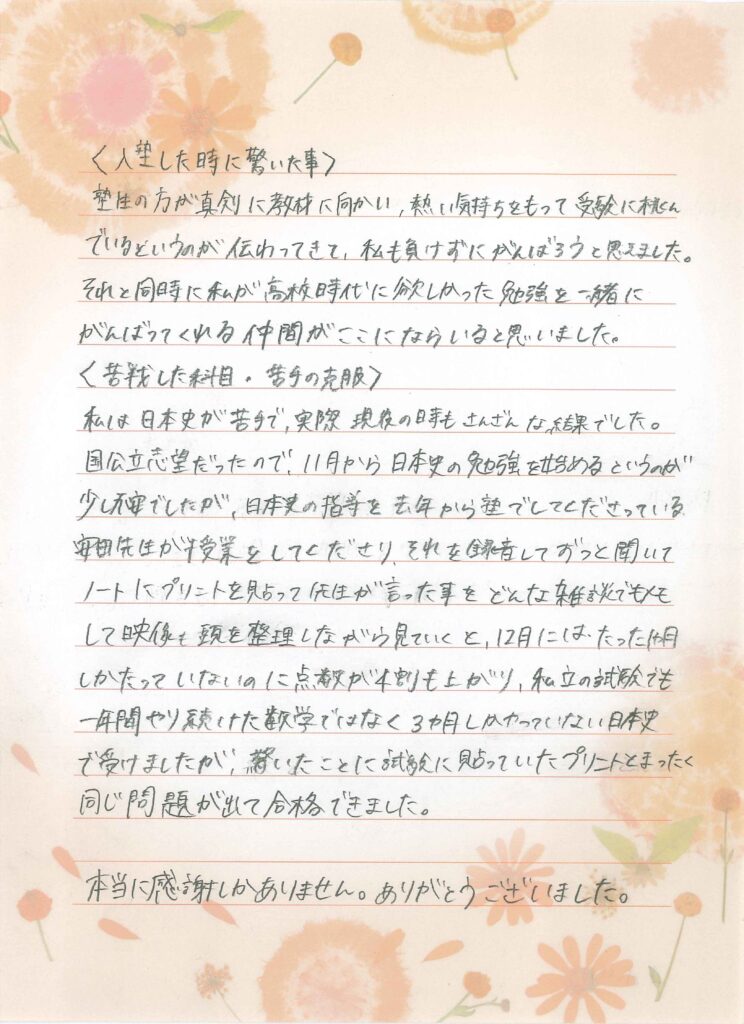 〈入塾した時に驚いた事〉
塾生の方が真剣に教材に向かい、熱い気持ちをもって受験に挑ん
でいるというのが伝わってきて、私も負けずにがんばろうと思えました。
それと同時に私が高校時代に欲しかった勉強を一緒に
がんばってくれる仲間がここにならいると思いました。
〈苦戦した科目・苦手の克服〉
私は日本史が苦手で、実際現役の時もさんざんな結果でした。
国公立志望だったので、11月から日本史の勉強を始めるというのが
少し不安でしたが、日本史の指導を去年から塾でしてくださっている
安田先生が授業をしてくださり、それを録音してずっと聞いて
ノートにプリントを貼って先生が言った事をどんな雑談でもメモ
して映像も頭を整理しながら見ていくと、12月には、たった1ヵ月
しかたっていないのに点数が4割も上がり、私立の試験でも
一年間やり続けた数学ではなく3ヵ月しかやっていない日本史
で受けましたが、驚いたことに試験に貼っていたプリントとまったく
同じ問題が出て合格できました。
本当に感謝しかありません。ありがとうございました。